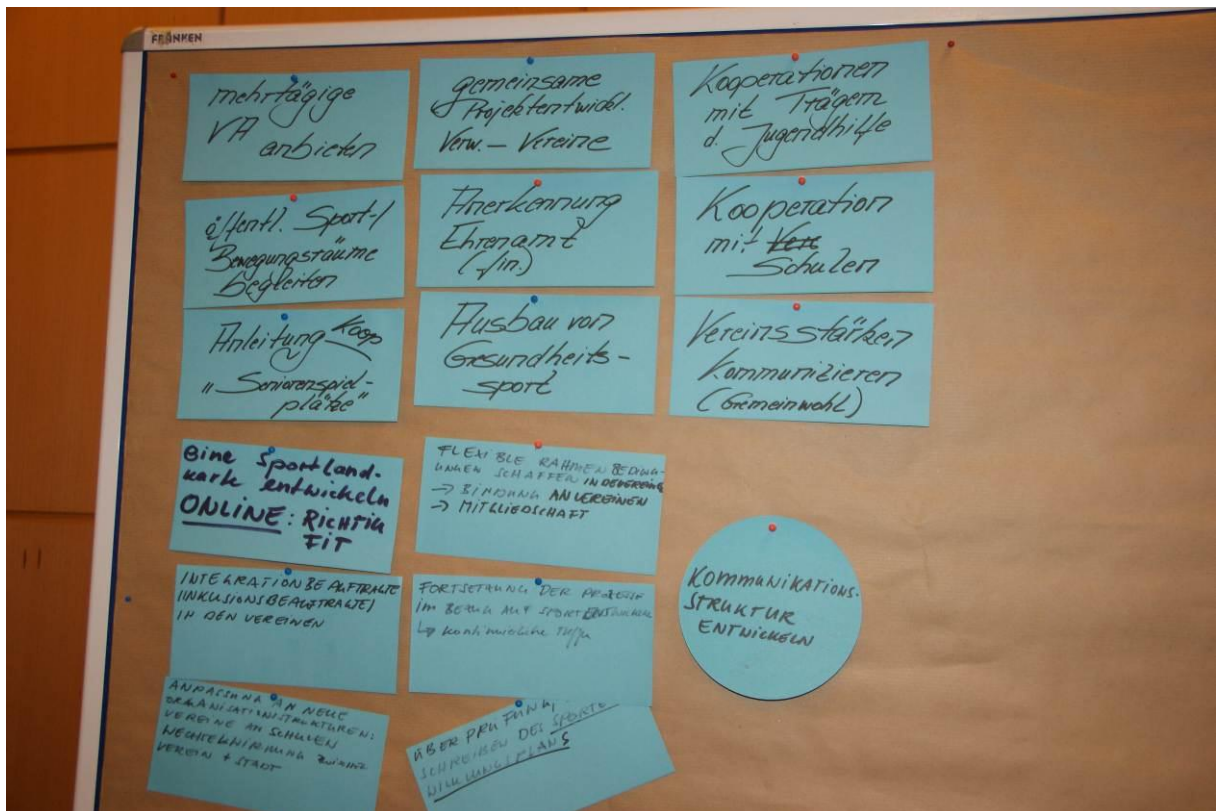 FRANKEN
mehrtägige
VA
anbieten
gemeinsame
Projektentwickl.
Verw. – Vereine
Kooperationen
mit Trägern
d. Jugendhilfe
öffentl. Sport-/
Bewegungsräume
begleiten
Anerkennung
Ehrenamt
(fin.)
Kooperation
mit Vere
Schulen
Anleitung Koop
"Seniorenspiel-
plätze"
Ausbau von
Gesundheits-
sport
Vereinsstärken
Kommunizieren
(Gemeinwohl)
eine Sportland-
karte entwickeln
ONLINE: RICHTIG
FIT
FLEXIBLE RAHMENBEDING-
UNGEN SCHAFFEN IN DEVEREINE
-> BINDUNG AN VEREINEN
-> MITGLIEDSCHAFT
KOMMUNIKATIONS-
STRUKTUR
ENTWICKELN
INTEGRATIONBEAUFTRAGTE
INKUSIONSBEAUFTRAGTE)
IN DEN VEREINEN
FORTSETZUNG DER PROZESSE
IM BEZUG AUF SPORTENTWICKLUNG
kontinuierliche
ANPASSUNG AN NEUE
ORGANISATIONSSTRUKTUREN:
VEREINE AN SCHULEN
VEREIN + STADT
ÜBERPRÜFUNG,
SCHREIBEN DES SPORTE
WICKLUNGSPLANS